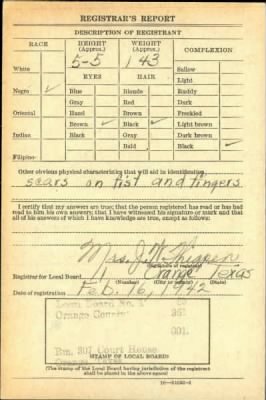 REGISTRAR'S REPORT
DESCRIPTION OF REGISTRANT
RACE HEIGHT (Approx.) WEIGHT (Approx.) COMPLEXION
5-5 143
White Sallow
EYES HAIR Light
Negro ✓ Blue Blonde Ruddy
Gray Red Dark
Oriental Hazel Brown Freckled
Brown ✓ Black ✓ Light brown
Indian Black Gray Dark brown
Bald Black ✓
Filipino
Other obvious physical characteristics that will aid in identification
scars on fist and fingers
I certify that my answers are true; that the person registered has read or has had
read to him his own answers; that I have witnessed his signature or mark and that
all of his answers of which I have knowledge are true, except as follows:
Mrs. J. W.
Registrar for Local Board 1 Orange Texas
(Number) (City or county) (State)
Date of registration Feb. 16, 1942
Local Board No. 1
Orange County 361
001
Rm. 307 Court House
Orange, Texas
STAMP OF LOCAL BOARD
(The stamp of the Local Board having jurisdiction of the registrant
shall be placed in the above space)